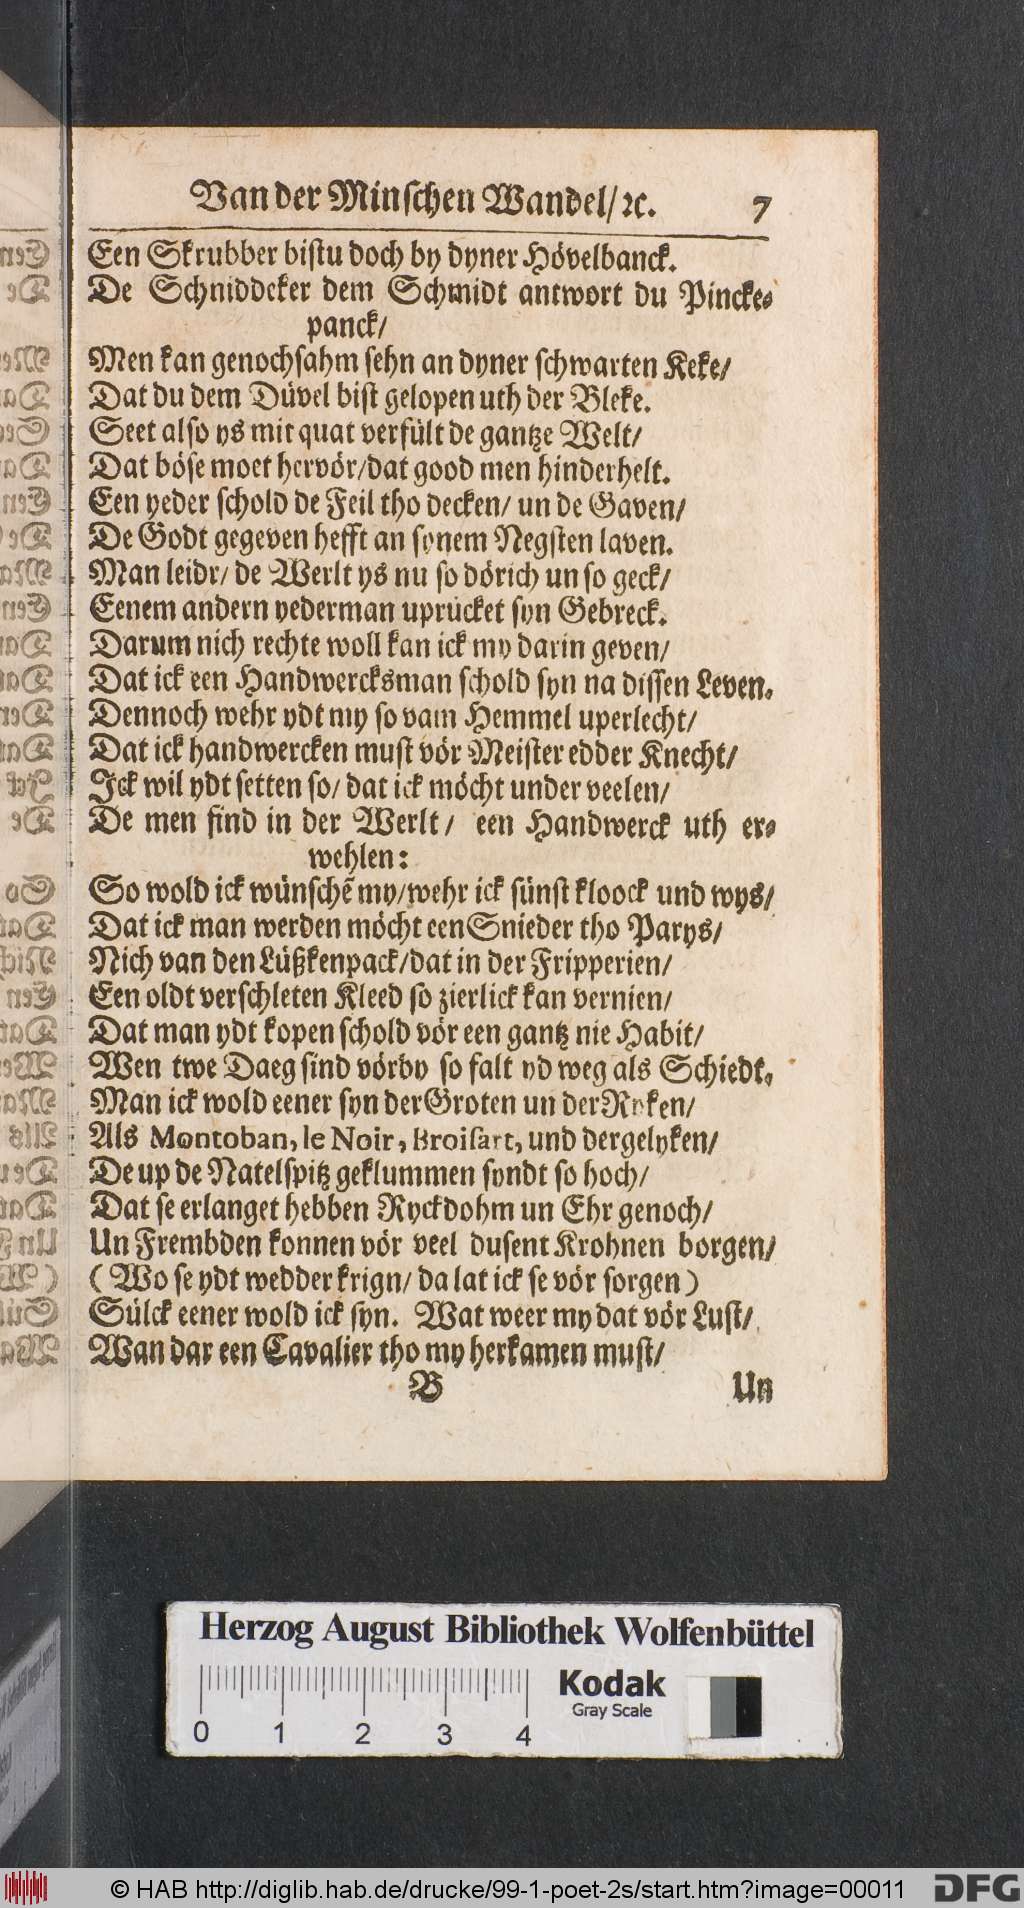 Van der Minschen Wandel/ ꝛc. 7
Een Skrubber bistu doch by dyner Hövelbanck.
De Schniddeker dem Schmidt antwort du Pincke-
panck/
Men kan genochsahm sehn an dyner schwarten Keke/
Dat du dem Düvel bist gelopen uth der Bleke.
Seet also ys mit quat verfült de gantze Welt/
Dat böse moet hervör/dat good men hinderhelt.
Een yeder schold de Feil tho decken/ un de Gaven/
De Godt gegeven hefft an synem Negsten laven.
Man leidr/ de Werlt ys nu so dörich un so geck/
Eenem andern yederman uprücket syn Gebreck.
Darum nich rechte woll kan ick my darin geven/
Dat ick een Handwercksman schold syn na dissen Leven.
Dennoch wehr ydt my so vam Hemmel uperlecht/
Dat ick handwercken must vör Meister edder Knecht/
Ick wil ydt setten so/ dat ick möcht under veelen/
De men find in der Werlt/ een Handwerck uth er-
wehlen:
So wold ick wünschē my/wehr ick sünst kloock und wys/
Dat ick man werden möcht een Snieder tho Parys/
Nich van den Lüßkenpack/dat in der Fripperien/
Een oldt verschleten Kleed so zierlick kan vernien/
Dat man ydt kopen schold vör een gantz nie Habit/
Wen twe Daeg sind vörby so falt yd weg als Schiedt,
Man ick wold eener syn der Groten un der Ryken/
Als Montoban, le Noir, Broisart, und dergelyken/
De up de Natelspitz geklummen syndt so hoch/
Dat se erlanget hebben Ryckdohm un Ehr genoch/
Un Frembden konnen vör veel dusent Krohnen borgen/
(Wo se ydt wedder krign/ da lat ick se vör sorgen)
Sülck eener wold ick syn. Wat weer my dat vör Lust/
Wan dar een Cavalier tho my herkamen must/
B Un
Herzog August Bibliothek Wolfenbüttel
Kodak
Gray Scale
0 1 2 3 4
© HAB http://diglib.hab.de/drucke/99-1-poet-2s/start.htm?image=00011 DFG